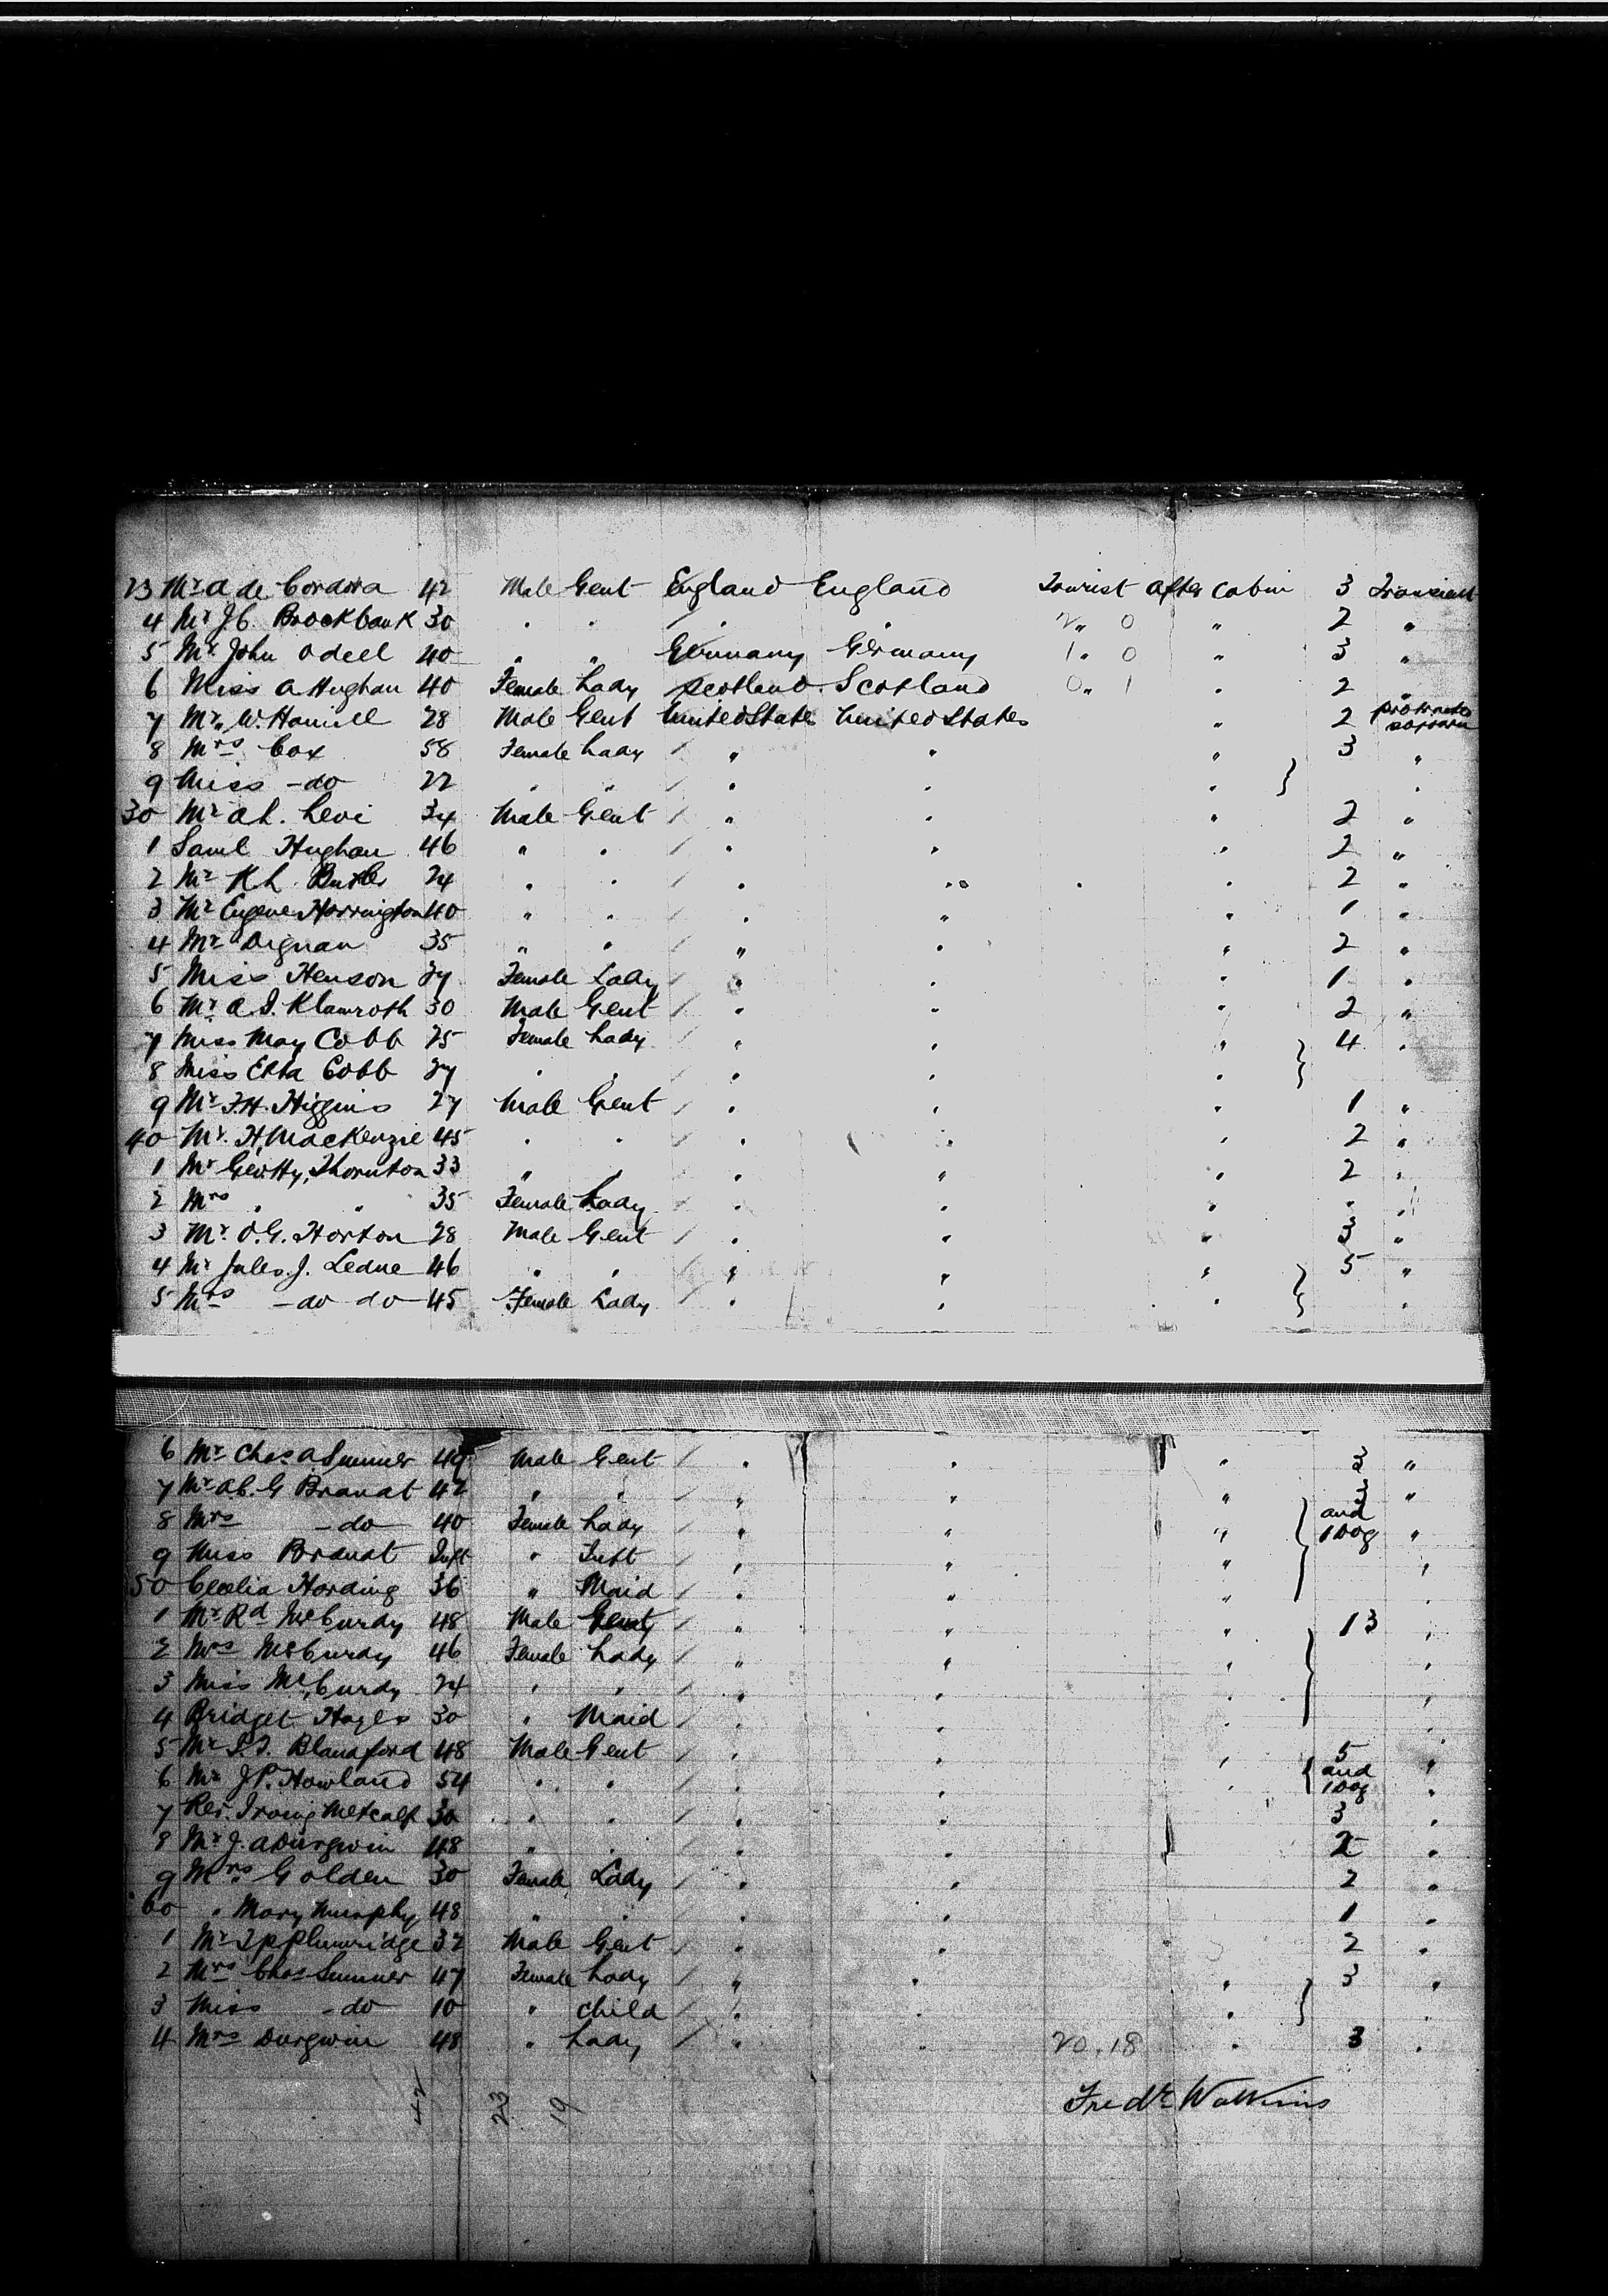 23 Mr A de Cordova 42 Male Gent England England Tourist After Cabin 3 Transient
4 Mr J.C. Brockbank 30 " " " " 2 " 0 " 2 "
5 Mr John Odell 40 " " Germany Germany 1 " 0 " 3 "
6 Miss A Hughan 40 Female Lady Scotland Scotland 0 " 1 " 2 "
7 Mr W. Hamill 28 Male Gent United States United States " 2 protracted sojourn
8 Mrs Cox 58 Female Lady / " " " 3 "
9 Miss -do 22 " " / " " " } "
30 Mr A L. Levi 34 Male Gent / " " " 2 "
1 Saml Hughan 46 " " / " " " 2 "
2 Mr K L. Butler 24 " " / " " " 2 "
3 Mr Eugene Horrington 40 " " / " " " 1 "
4 Mr Dignan 35 " " / " " " 2 "
5 Miss Henson 27 Female Lady / " " " 1 "
6 Mr A. I. Klamroth 30 Male Gent / " " " 2 "
7 Miss May Cobb 25 Female Lady / " " " } 4 "
8 Miss Etta Cobb 27 " " / " " "
9 Mr F.H. Higgins 27 Male Gent / " " " 1 "
40 Mr. H. MacKenzie 45 " " / " " " 2 "
1 Mr Geo Hy. Thornton 33 " " / " " " 2 "
2 Mrs " " 35 Female Lady / " " " " "
3 Mr. O.G. Horton 28 Male Gent / " " " 3 "
4 Mr Jules. J. Ledue 46 " " / " " " } 5 "
5 Mrs - do do - 45 Female Lady / " " " "
6 Mr Chas A Sumner 49 Male Gent / " " " 3 "
7 Mr A.C. G Brandt 42 " " / " " " 3 "
8 Mrs - do 40 Female Lady / " " " } and 100g "
9 Miss Brandt Inft " Inft / " " " "
50 Cecelia Harding 36 " Maid / " " " "
1 Mr Rd McCurdy 48 Male Gent / " " " 13 "
2 Mrs McCurdy 46 Female Lady / " " " } "
3 Miss McCurdy 24 " " / " " "
4 Bridget Hayes 30 " Maid / " " " "
5 Mr S. I. Blandford 48 Male Gent / " " " 5 "
6 Mr J P. Howland 54 " " / " " " { and 100g "
7 Rev. Irving Metcalf 30 " " / " " 3 "
8 Mr J. A Durgwin 48 " " / " " 2 "
9 Mrs Golden 30 Female Lady / " " 2 "
60 " Mary Murphy 48 " " / " " 1 "
1 Mr I P Plumridge 32 Male Gent / " " 2 "
2 Mrs Chas Sumner 47 Female Lady / " " " } 3 "
3 Miss - do 10 " Child / " " " "
4 Mrs Durgwin 48 " Lady / " " 20.18 " 3 "
42 23 19
Fredk Watkins